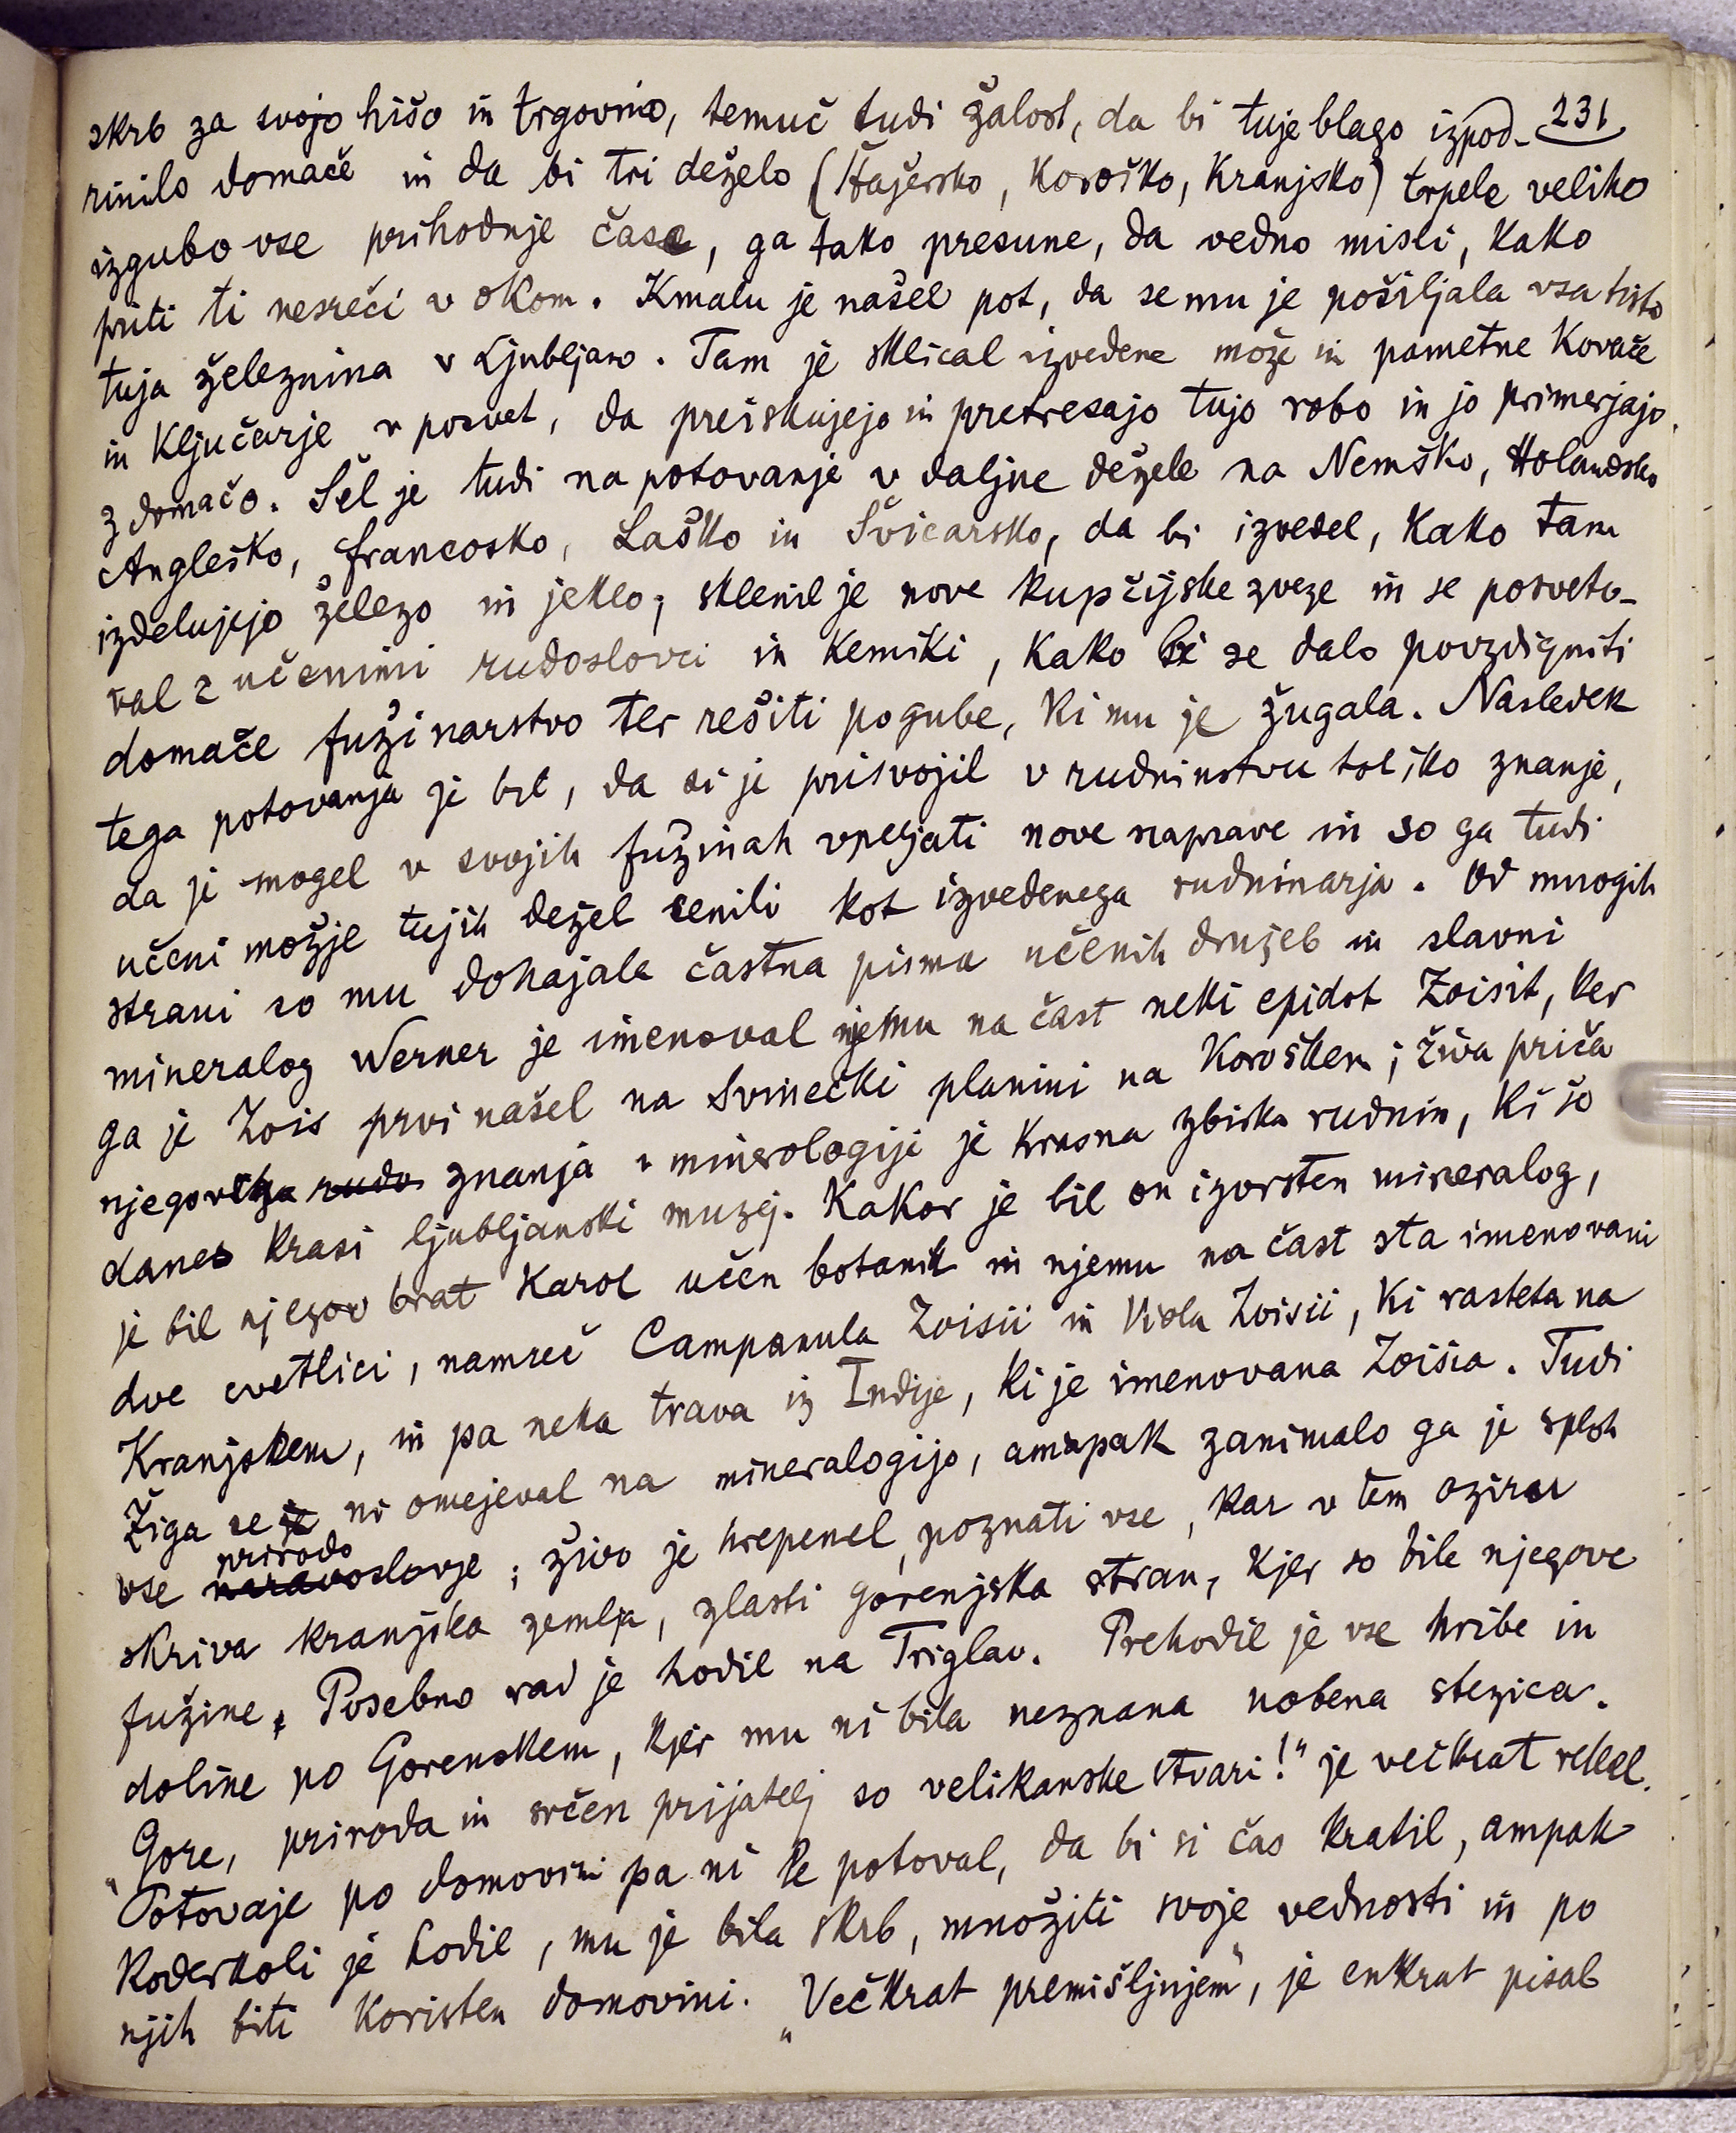 skrb za svojo hišo in trgovino, temuč tudi žalost, da bi tuje blago izpod- 231
rinilo domače in da bi tri dežele (Štajersko, Koroško, Kranjsko) trpele veliko
izgubo vse prihodnje čase, ga tako presune, da vedno misli, kako
priti ti nesreči v okom. Kmalu je našel pot, da se mu je pošiljala vsa tista
tuja železnina v Ljubljano. Tam je sklical izvedene može in pametne kovače
in ključarje v posvet, da preiskujejo in pretresajo tujo robo in jo primerjajo
z domačo. Šel je tudi na potovanje v daljne dežele na Nemško, Holandsko
Angleško, francosko, Laško in Švicarsko, da bi izvedel, kako tam
izdelujejo železo in jeklo; sklenil je nove kupčijske zveze in se posveto-
val z učenimi rudoslovci in kemiki, kako bi se dalo povzdigniti
domače fužinarstvo ter rešiti pogube, ki mu je žugala. Nasledek
tega potovanja je bil, da si je prisvojil v rudninstvu toliko znanje,
da je mogel v svojih fužinah vpeljati nove naprave in so ga tudi
učeni možje tujih dežel cenili kot izvedenega rudninarja. Od mnogih
strani so mu dohajala častna pisma učenih družeb in slavni
mineralog Werner je imenoval njemu na čast neki epidot Zoisit, ker
ga je Zois prvi našel na Svinečki planini na Koroškem; živa priča
njegovega rudo znanja v minerologiji je krasna zbirka rudnin, ki še
danes krasi ljubljanski muzej. Kakor je bil on izvrsten mineralog,
je bil njegov brat Karol učen botanik in njemu na čast sta imenovani
dve cvetlici, namreč Campanula Zoisii in Viola Zoisii, ki rasteta na
Kranjskem, in pa neka trava iz Indije, ki je imenovana Zoisia. Tudi
Žiga se je ni omejeval na mineralogijo, ampak zanimalo ga je sploh
prirodo
vse naravoslovje; živo je hrepenel, poznati vse, kar v tem oziru
skriva kranjska zemlja, zlasti gorenjska stran, kjer so bile njegove
fužine. Posebno rad je hodil na Triglav. Prehodil je vse hribe in
doline po Gorenskem, kjer mu ni bila neznana nobena stezica.
„Gore, priroda in srčen prijatelj so velikanske stvari!" je večkrat rekel.
Potovaje po domovini pa ni le potoval, da bi si čas kratil, ampak
koderkoli je hodil, mu je bila skrb, množiti svoje vednosti in po
njih biti koristen domovini. „Večkrat premišljujem", je enkrat pisal